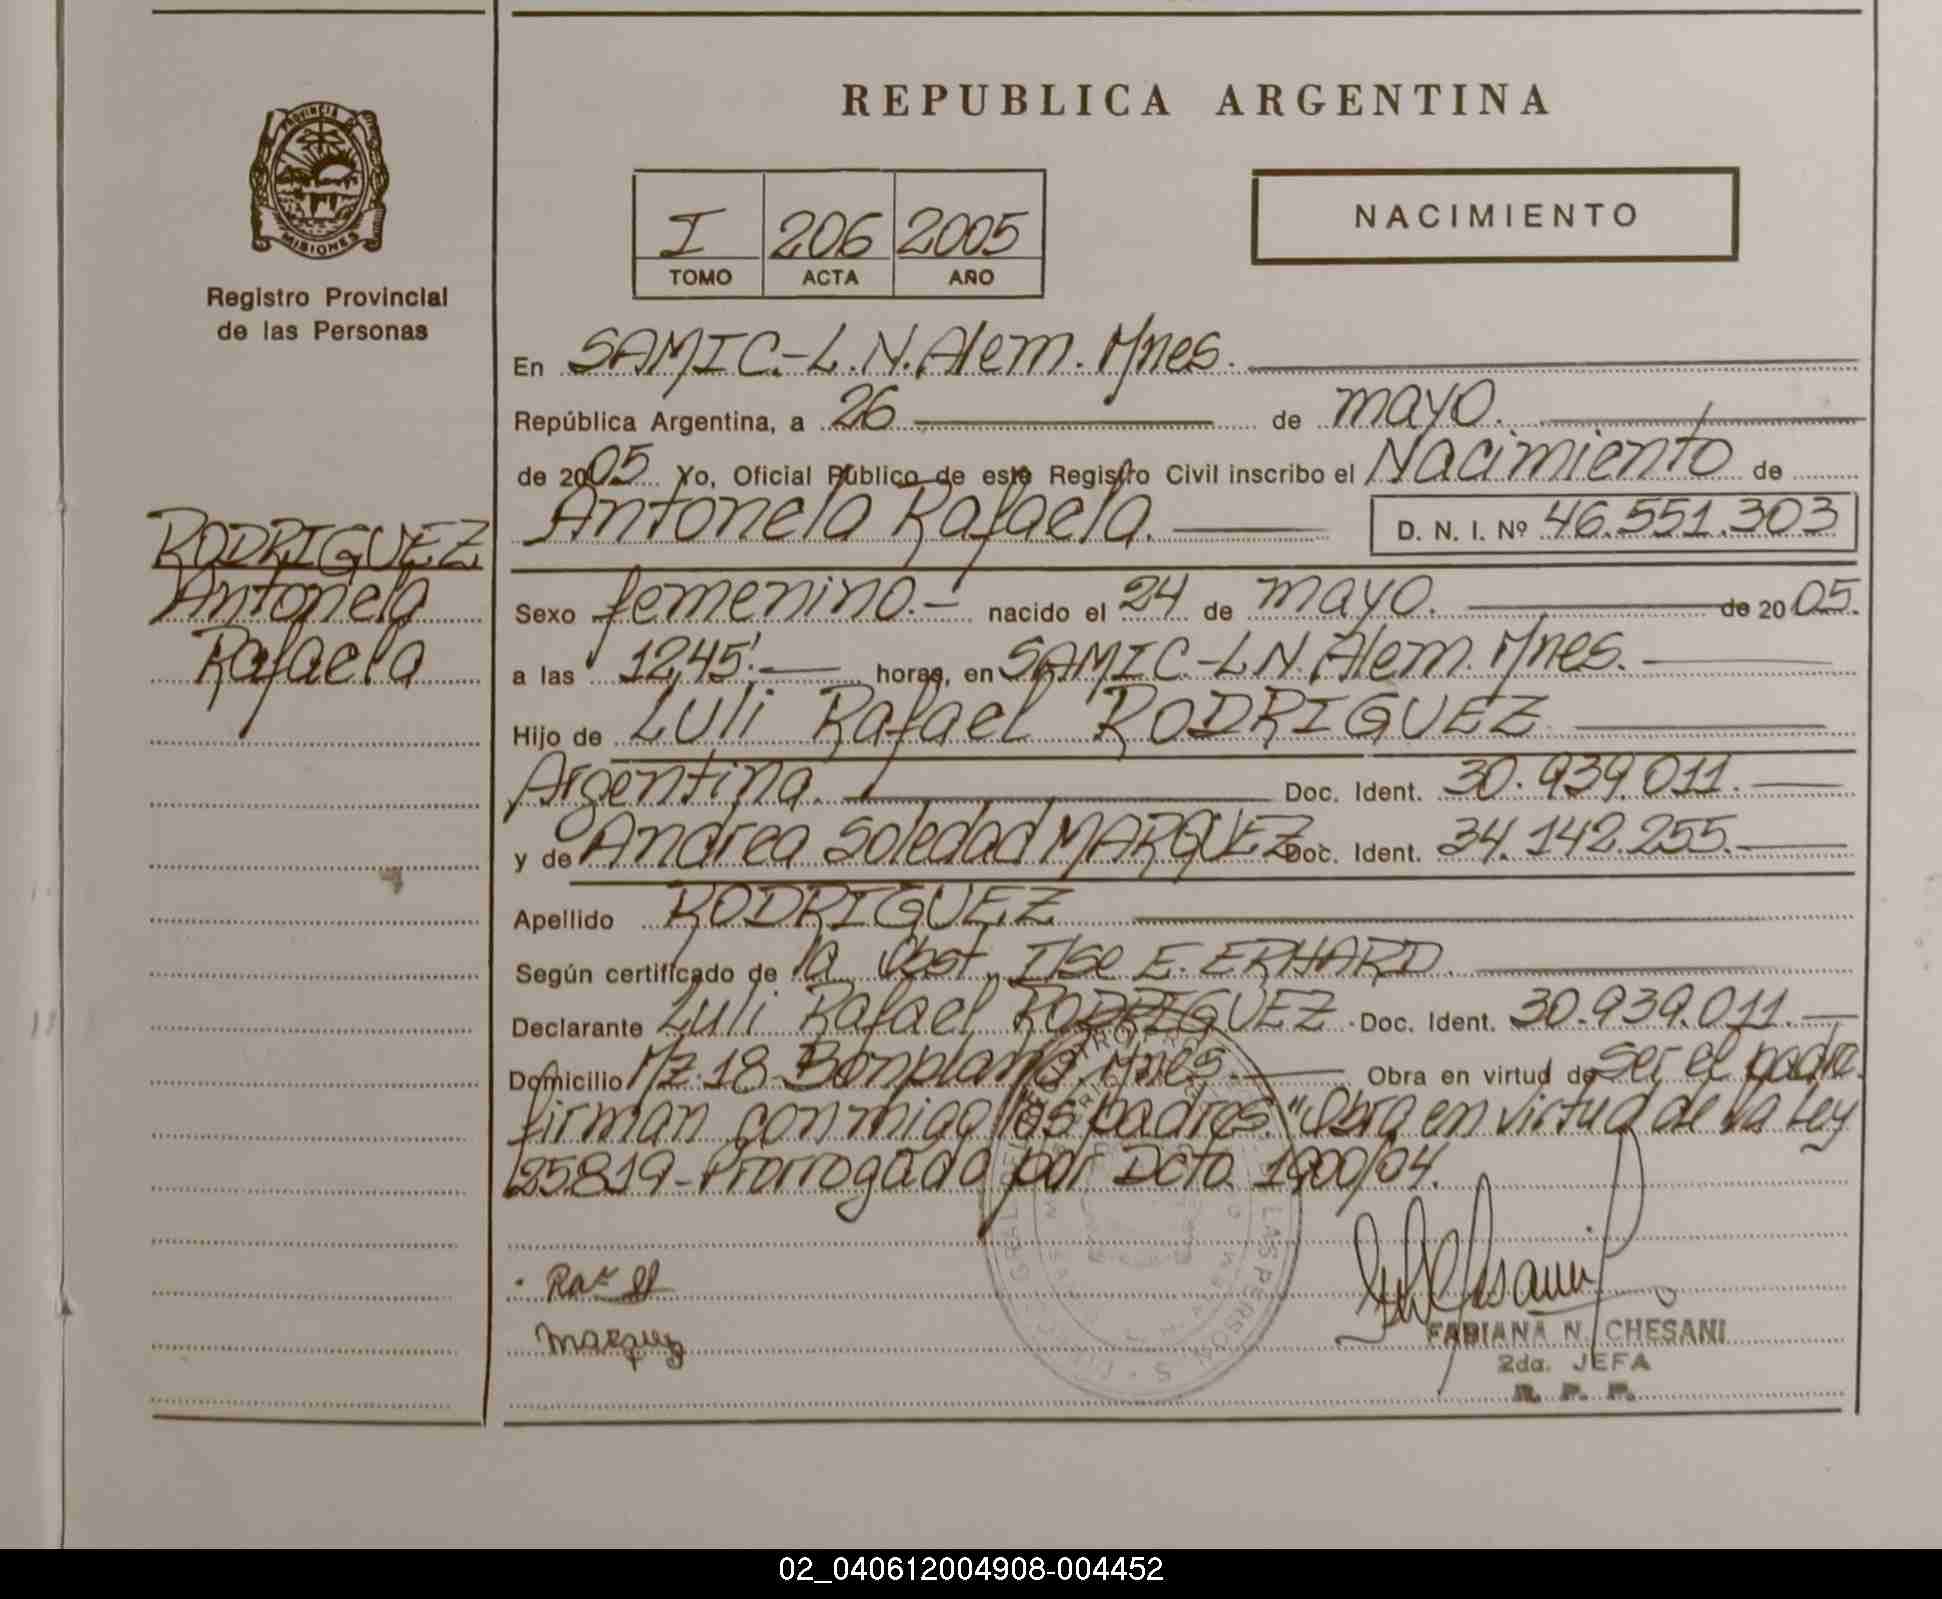 REPUBLICA ARGENTINA
PROVINCIA DE
MISIONES
Registro Provincial
de las Personas
I 206 2005
TOMO ACTA AÑO
NACIMIENTO
En SAMIC.-L.N.Alem. Mnes.
República Argentina, a 26 de mayo.
de 2005 Yo, Oficial Público de este Registro Civil inscribo el Nacimiento de
Antonela Rafaela. D. N. I. Nº 46.551.303
RODRIGUEZ
Antonela
Rafaela
Sexo femenino.- nacido el 24 de mayo. de 2005.
a las 12,45'. horas, en SAMIC.-L.N. Alem. Mnes.
Hijo de Luli Rafael RODRIGUEZ
Argentina. Doc. Ident. 30.939.011.
y de Andrea Soledad MARQUEZ Doc. Ident. 34.142.255.
Apellido RODRIGUEZ
Según certificado de la Obst. Ilse E. ERHARD.
Declarante Luli Rafael RODRIGUEZ Doc. Ident. 30.939.011.
Domicilio Mz.18 Bonpland. Mnes. Obra en virtud de ser el padre.
firman conmigo los padres. "Obra en virtud de la Ley
25819-Prorrogado por Dcto. 1900/04.
Marquez
FABIANA N. CHESANI
2da. JEFA
R. P. P.
02_040612004908-004452